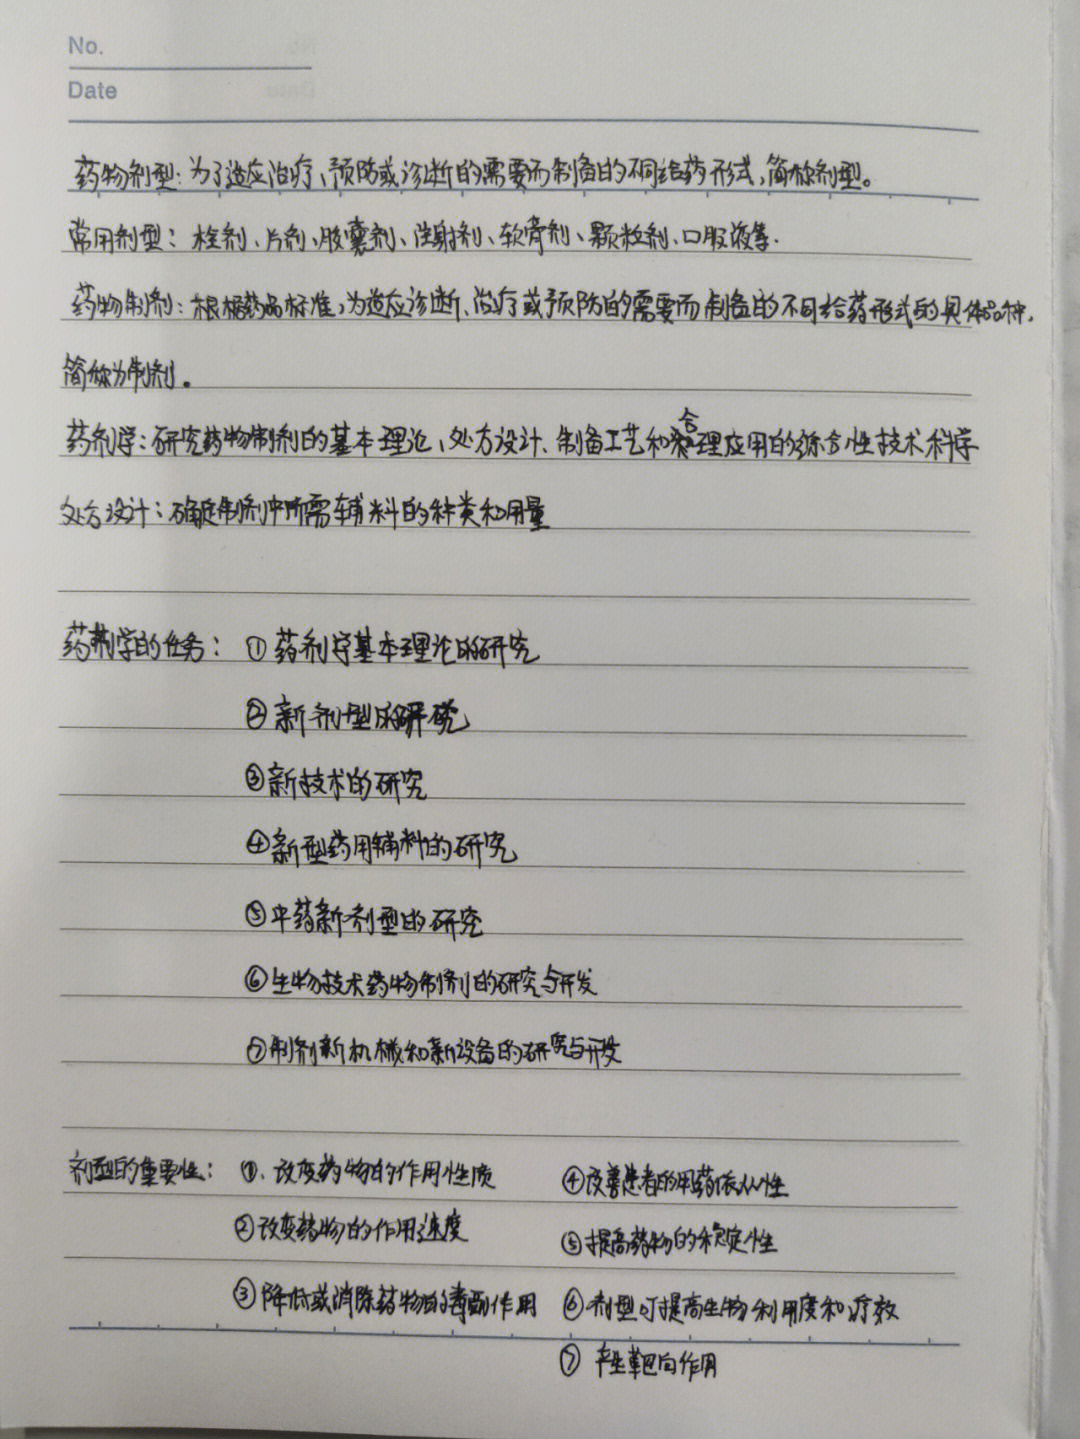 No.
Date
药物剂型：为了适应治疗、预防或诊断的需要而制备的不同给药形式，简称剂型。
常用剂型：栓剂、片剂、胶囊剂、注射剂、软膏剂、颗粒剂、口服液等.
药物制剂：根据药品标准，为适应诊断、治疗或预防的需要而制备的不同给药形式的具体品种，
简称为制剂。
药剂学：研究药物制剂的基本理论、处方设计、制备工艺和合理应用的综合性技术科学
处方设计：确定制剂中所需辅料的种类和用量
药剂学的任务：①药剂学基本理论的研究
②新剂型的研究
③新技术的研究
④新型药用辅料的研究
⑤中药新剂型的研究
⑥生物技术药物制剂的研究与开发
⑦制剂新机械和新设备的研究与开发
剂型的重要性：①、改变药物的作用性质 ④改善患者的用药依从性
②改变药物的作用速度 ⑤提高药物的稳定性
③降低或消除药物的毒副作用 ⑥剂型可提高生物利用度和疗效
⑦产生靶向作用